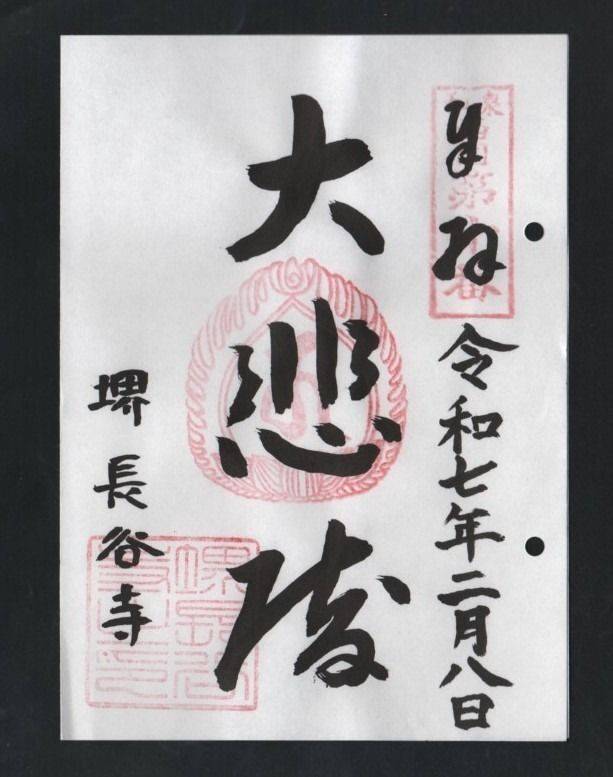 奉拝 令和七年二月八日
大悲殿
堺 長谷寺
堺長谷寺之印